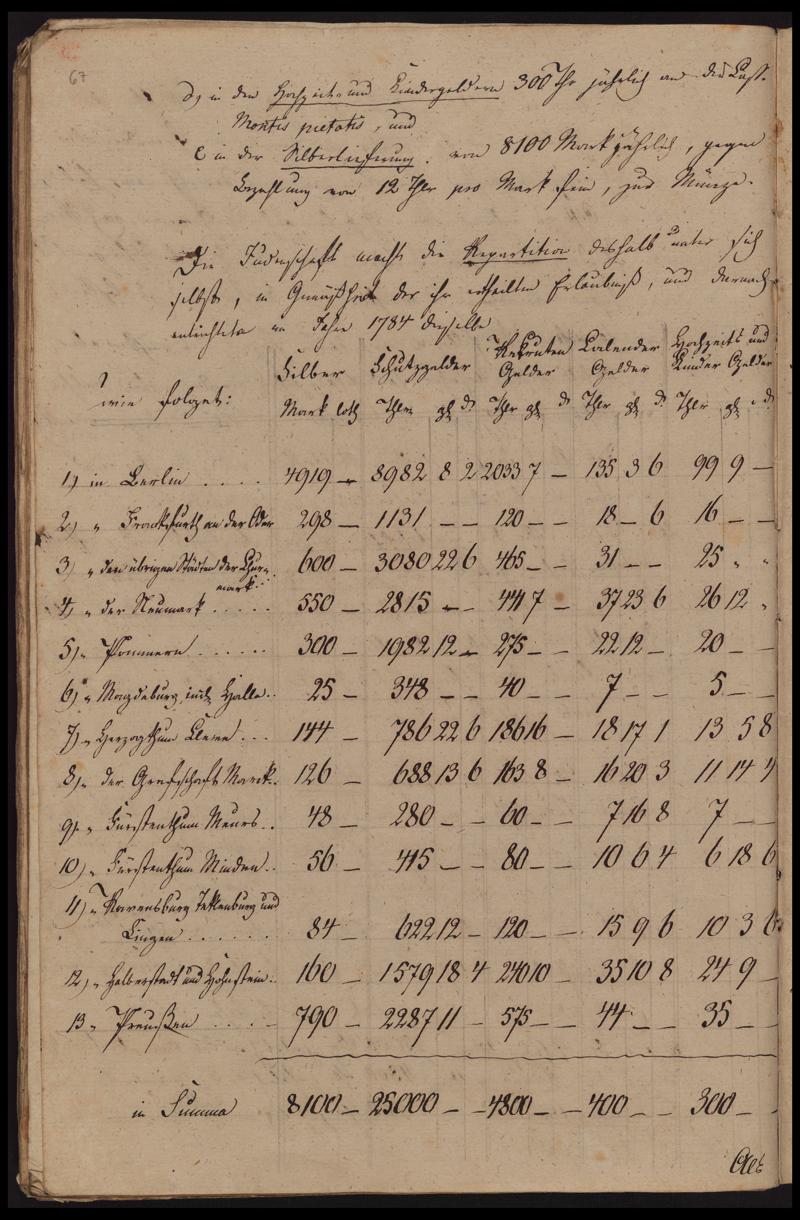 67
d, in den Hochzeit- und Kindergeldern 300 Thr jährlich an die Casse
Montis pietatis, und
e in der Silberlieferung. von 8100 Mark jährlich, gegen
Bezahlung von 12 Thlr pro Mark fein, zur Münze.
Die Judenschaft macht die Repartition deshalb unter sich
selbst, in Gemäßheit der ihr ertheilten Erlaubniß, und darnach
entrichtete im Jahre 1784 dieselbe
wie folget:
Silber Schutzgelder Rekruten Gelder Calender Gelder Hochzeits und Kinder Gelder
Mark loth Thlr gl d Thr gl d Thlr gl d Thlr gl d
1) in Berlin . . . . 4919 — 8982 8 2 2033 7 — 135 3 6 99 9 —
2) " Frankfurth an der Oder 298 — 1131 — — 120 — — 18 — 6 16 — —
3) " den übrigen Städten der Churmark 600 — 3080 22 6 465 — — 31 — — 25 " "
4) " der Neumark . . . . . 550 — 2815 — — 441 7 — 37 23 6 26 12 "
5) " Pommern . . . . . . 300 — 1982 12 — 275 — — 22 12 — 20 — —
6) " Magdeburg incl. Halle . . 25 — 348 — — 40 — — 7 — — 5 — —
7) " Herzogthum Cleve . . . 144 — 786 22 6 186 16 — 18 17 1 13 5 8
8) " der Grafschaft Marck . . 126 — 688 13 6 163 8 — 16 20 3 11 14 4
9) " Fürstenthum Meurs . . 48 — 280 — — 60 — — 7 16 8 7 — —
10) " Fürstenthum Minden . . 56 — 415 — — 80 — — 10 6 4 6 18 6
11) " Ravensburg Teklenburg und
Lingen . . . . . . 84 — 622 12 — 120 — — 15 9 6 10 3 6
12) " Halberstadt und Hohnstein . . 160 — 1579 18 4 240 10 — 35 10 8 24 9 —
13 " Preußen . . . . 790 — 2287 11 — 575 — — 44 — — 35 — —
in Summa 8100 — 25000 — — 4800 — — 400 — — 300 — —